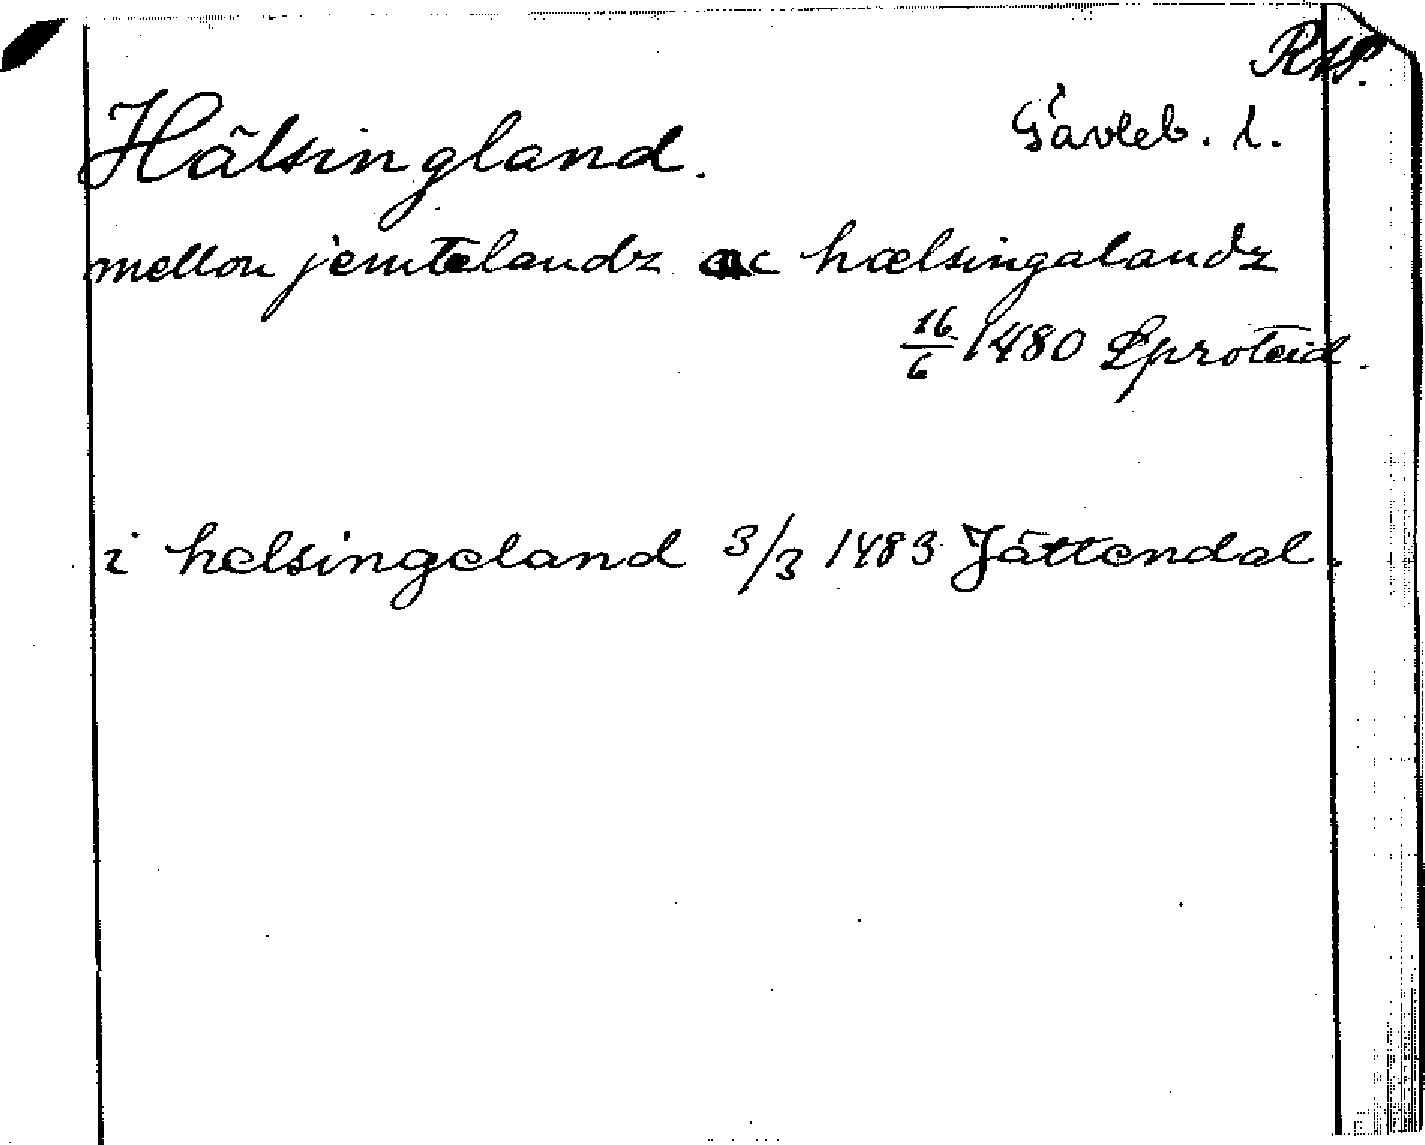 RAP.
Hälsingland. Gävleb. l.
mellon jemtelandz oc hælsingalandz
16/6 1480 Sproteid.
i helsingeland 3/3 1483 Jättendal.